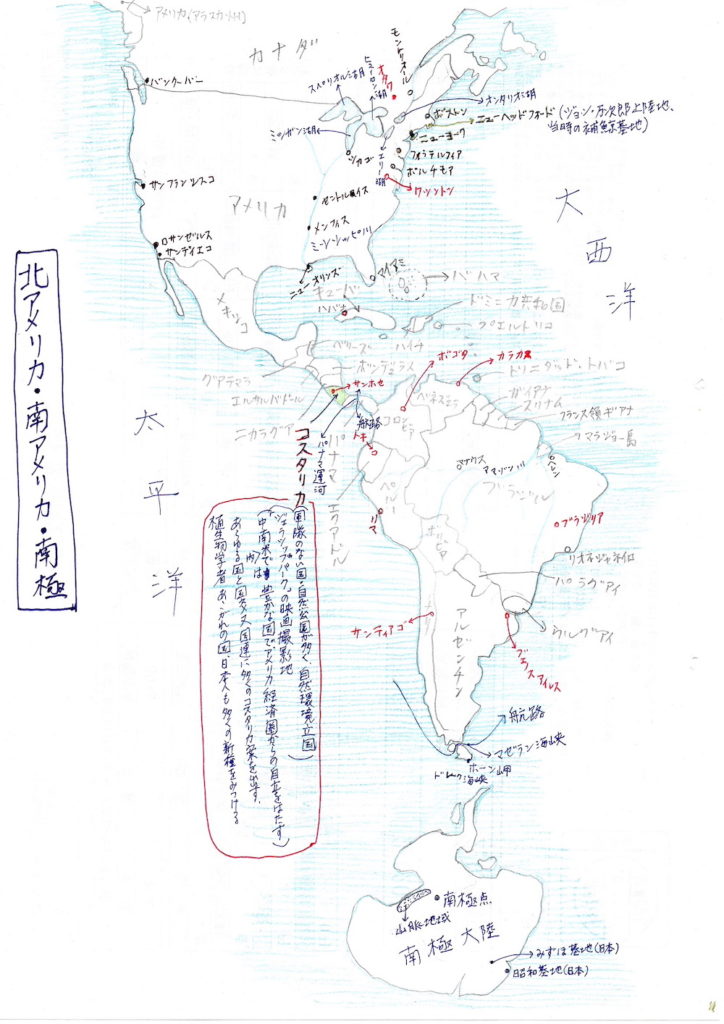 アメリカ(アラスカ州)
カナダ
バンクーバー
スペリオル湖
ヒューロン湖
オタワ
モントリオール
オンタリオ湖
ボストン
ニューヘッドフォード(ジョン・万次郎上陸地、
当時の捕鯨基地)
ミシガン湖
シカゴ
エリー湖
ニューヨーク
フィラデルフィア
ボルチモア
ワシントン
サンフランシスコ
アメリカ
セントルイス
メンフィス
ミシシッピ川
ロサンゼルス
サンディエゴ
ニューオリンズ
マイアミ
バハマ
大西洋
メキシコ
キューバ
ハバナ
ドミニカ共和国
プエルトリコ
ベリーズ
ハイチ
ホンデュラス
グアテマラ
エルサルバドル
ニカラグア
サンホセ
コスタリカ
航路
パナマ運河
パナマ
ボゴタ
カラカス
トリニダッド・トバコ
ベネズエラ
ガイアナ
スリナム
フランス領ギアナ
マラジョー島
コロンビア
キト
エクアドル
ペルー
リマ
マナウス
アマゾン川
ベレン
ブラジル
ブラジリア
リオネジャネイロ
ボリビア
パラグアイ
ウルグアイ
サンティアゴ
アルゼンチン
ブエノスアイレス
航路
マゼラン海峡
ホーン岬
ドレーク海峡
太平洋
北アメリカ・南アメリカ・南極
国隊のない国・自然公園が多く、自然環境立国
「ジェラシックパーク」の映画撮影地
中南米では豊かな国で、アメリカ経済圏からの自立をはたす
あらゆる国と国交、又国連に多くのコスタリカ案を出す。
植生物学者あこがれの国、日本人も多くの新種をみつける
南極点
山脈地域
南極大陸
みずほ基地(日本)
昭和基地(日本)